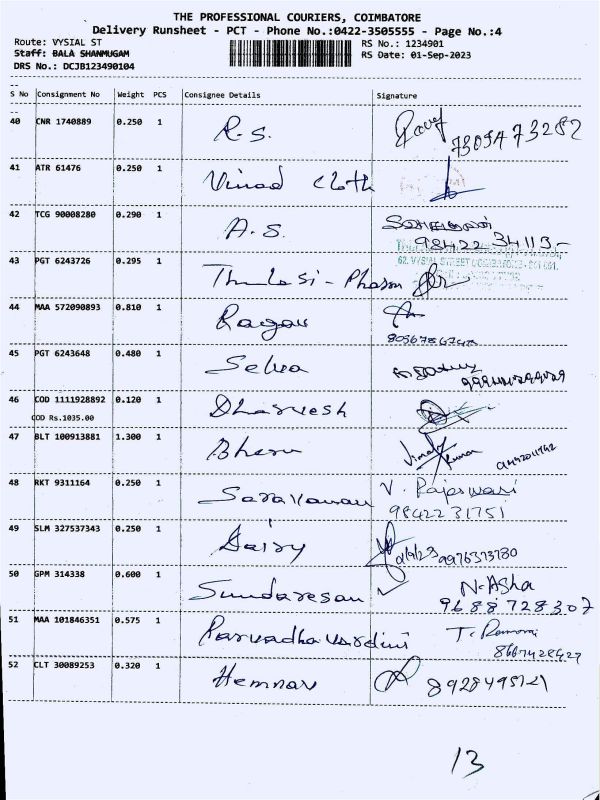 THE PROFESSIONAL COURIERS, COIMBATORE
Delivery Runsheet - PCT - Phone No.:0422-3505555 - Page No.:4
Route: VYSIAL ST RS No.: 1234901
Staff: BALA SHANMUGAM RS Date: 01-Sep-2023
DRS No.: DCJB123490104
S No Consignment No Weight PCS Consignee Details Signature
40 CNR 1740889 0.250 1 R.S.
7305473282
41 ATR 61476 0.250 1 Vinod Cloth
42 TCG 90008280 0.290 1 A.S.
98422 34113
62, VYSIAL STREET
43 PGT 6243726 0.295 1 Thulasi - Pharm
44 MAA 572090893 0.810 1 Ragav
45 PGT 6243648 0.480 1 Selva
46 COD 1111928892 0.120 1 Dharvesh
COD Rs.1035.00
47 BLT 100913881 1.300 1 Bheru
Vimal Kumar
48 RKT 9311164 0.250 1 Saravanan V. Rajaswari
98422 31751
49 SLM 327537343 0.250 1 Dairy 1/9/23 9976373780
50 GPM 314338 0.600 1 Sundaresan N. Asha
96887 28307
51 MAA 101846351 0.575 1 Parvadhavardini
52 CLT 30089253 0.320 1 Hemnav
13